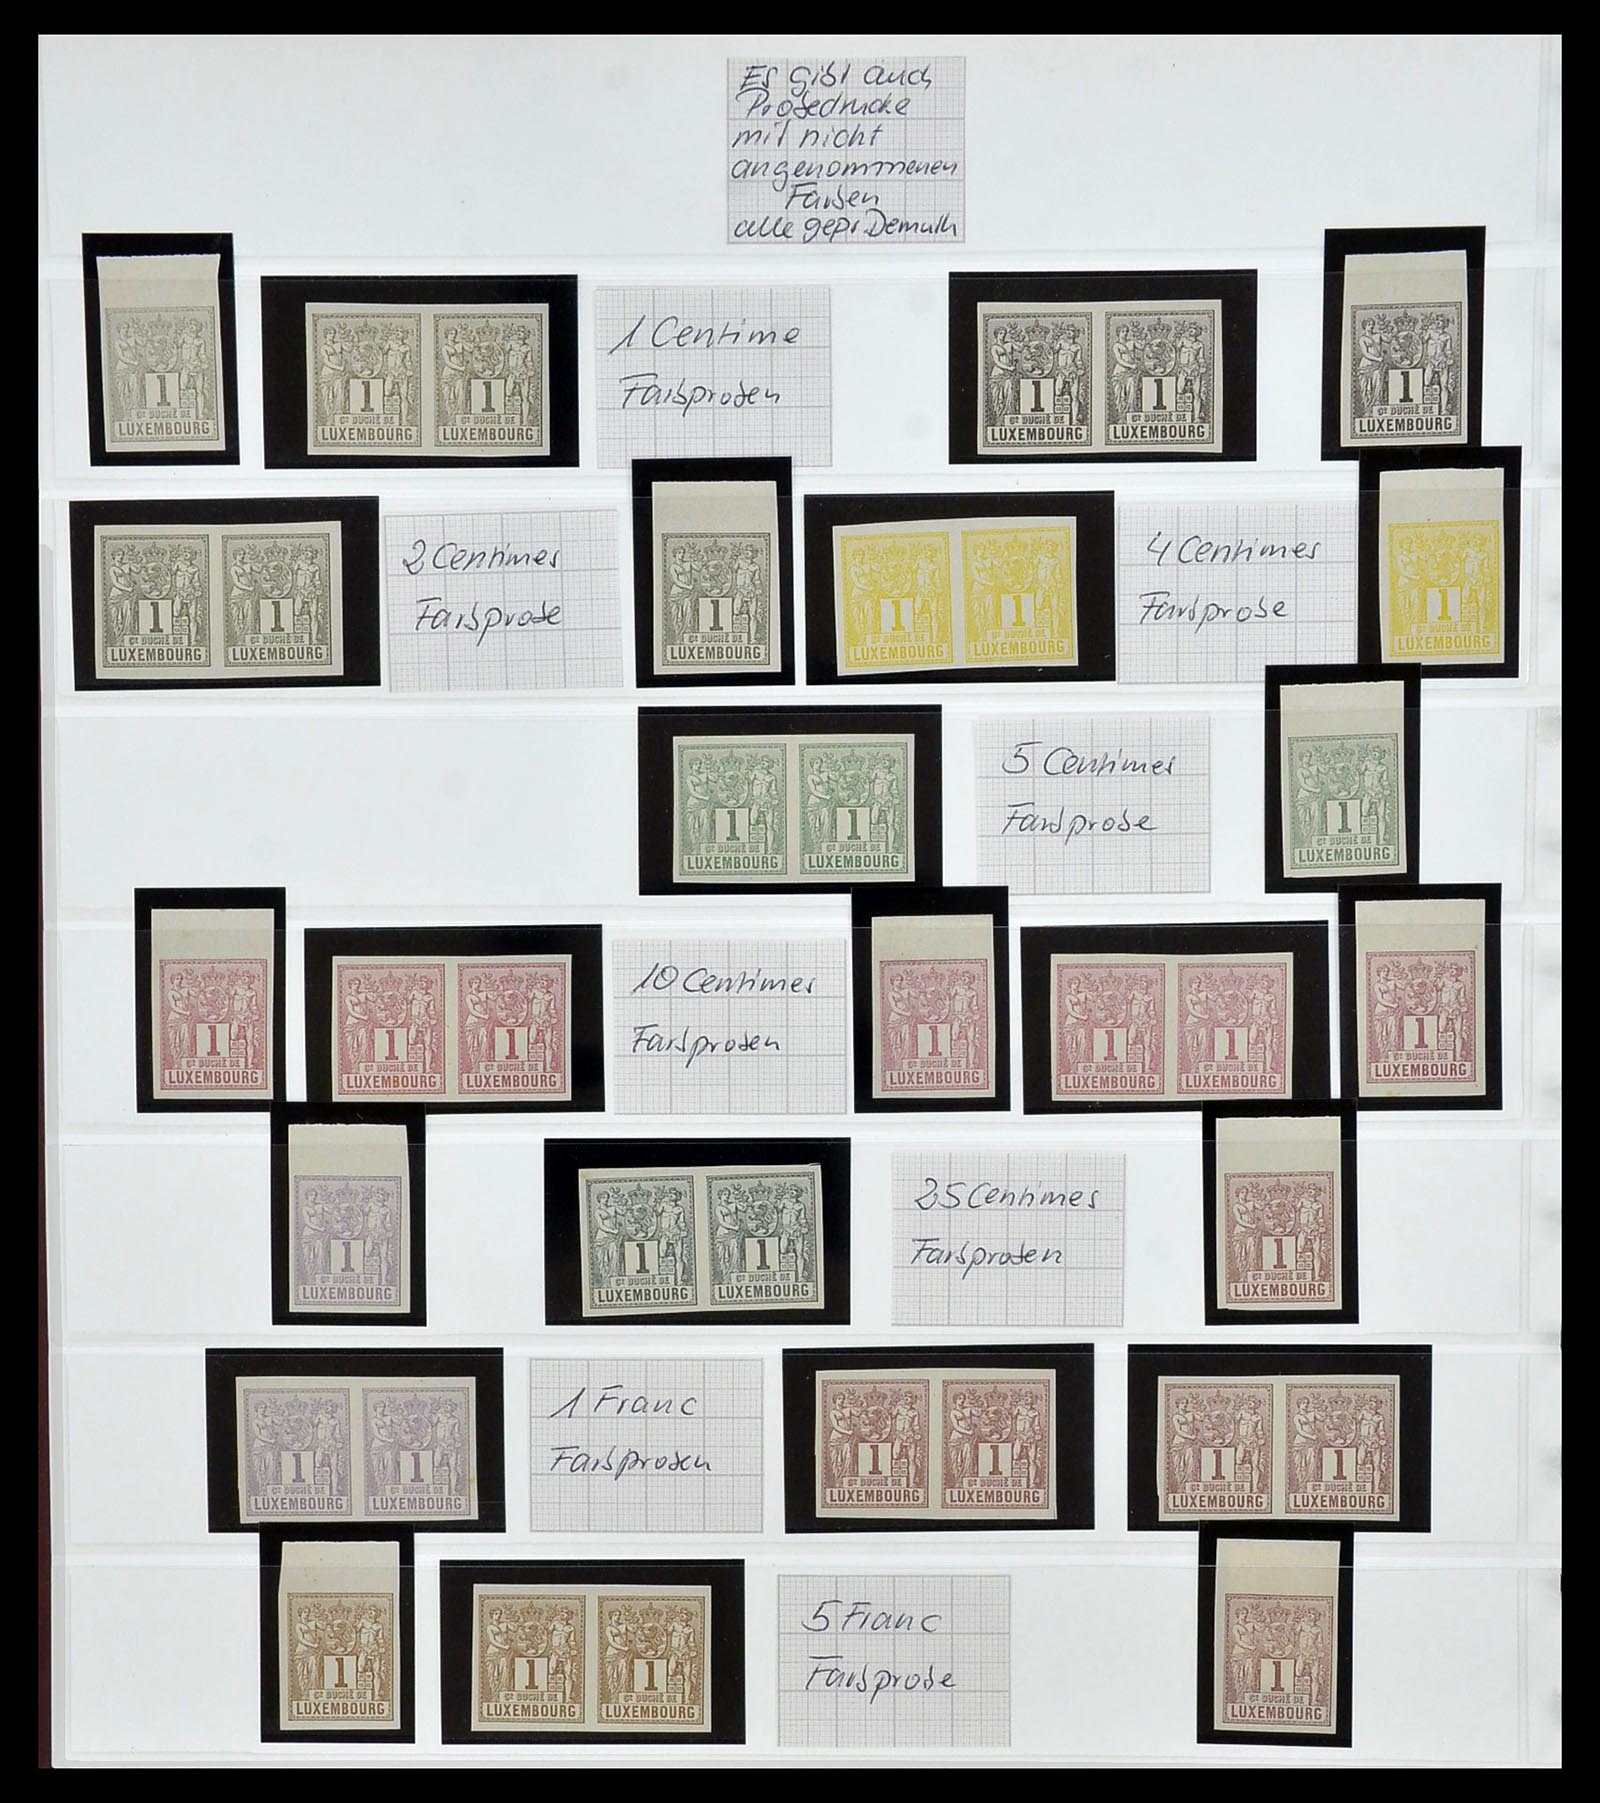 Es gibt auch
Probedrucke
mit nicht
angenommenen
Farben
alle gepr. Demuth
1
Gd DUCHÉ DE
LUXEMBOURG
1 1
Gd DUCHÉ DE Gd DUCHÉ DE
LUXEMBOURG LUXEMBOURG
1 Centime
Farbproben
1 1
Gd DUCHÉ DE Gd DUCHÉ DE
LUXEMBOURG LUXEMBOURG
1
Gd DUCHÉ DE
LUXEMBOURG
1 1
Gd DUCHÉ DE Gd DUCHÉ DE
LUXEMBOURG LUXEMBOURG
2 Centimes
Farbprobe
1
Gd DUCHÉ DE
LUXEMBOURG
1 1
Gd DUCHÉ DE Gd DUCHÉ DE
LUXEMBOURG LUXEMBOURG
4 Centimes
Farbprobe
1
Gd DUCHÉ DE
LUXEMBOURG
1 1
Gd DUCHÉ DE Gd DUCHÉ DE
LUXEMBOURG LUXEMBOURG
5 Centimes
Farbprobe
1
Gd DUCHÉ DE
LUXEMBOURG
1
Gd DUCHÉ DE
LUXEMBOURG
1 1
Gd DUCHÉ DE Gd DUCHÉ DE
LUXEMBOURG LUXEMBOURG
10 Centimes
Farbproben
1
Gd DUCHÉ DE
LUXEMBOURG
1 1
Gd DUCHÉ DE Gd DUCHÉ DE
LUXEMBOURG LUXEMBOURG
1
Gd DUCHÉ DE
LUXEMBOURG
1
Gd DUCHÉ DE
LUXEMBOURG
1 1
Gd DUCHÉ DE Gd DUCHÉ DE
LUXEMBOURG LUXEMBOURG
25 Centimes
Farbproben
1
Gd DUCHÉ DE
LUXEMBOURG
1 1
Gd DUCHÉ DE Gd DUCHÉ DE
LUXEMBOURG LUXEMBOURG
1 Franc
Farbproben
1 1
Gd DUCHÉ DE Gd DUCHÉ DE
LUXEMBOURG LUXEMBOURG
1 1
Gd DUCHÉ DE Gd DUCHÉ DE
LUXEMBOURG LUXEMBOURG
1
Gd DUCHÉ DE
LUXEMBOURG
1 1
Gd DUCHÉ DE Gd DUCHÉ DE
LUXEMBOURG LUXEMBOURG
5 Franc
Farbprobe
1
Gd DUCHÉ DE
LUXEMBOURG